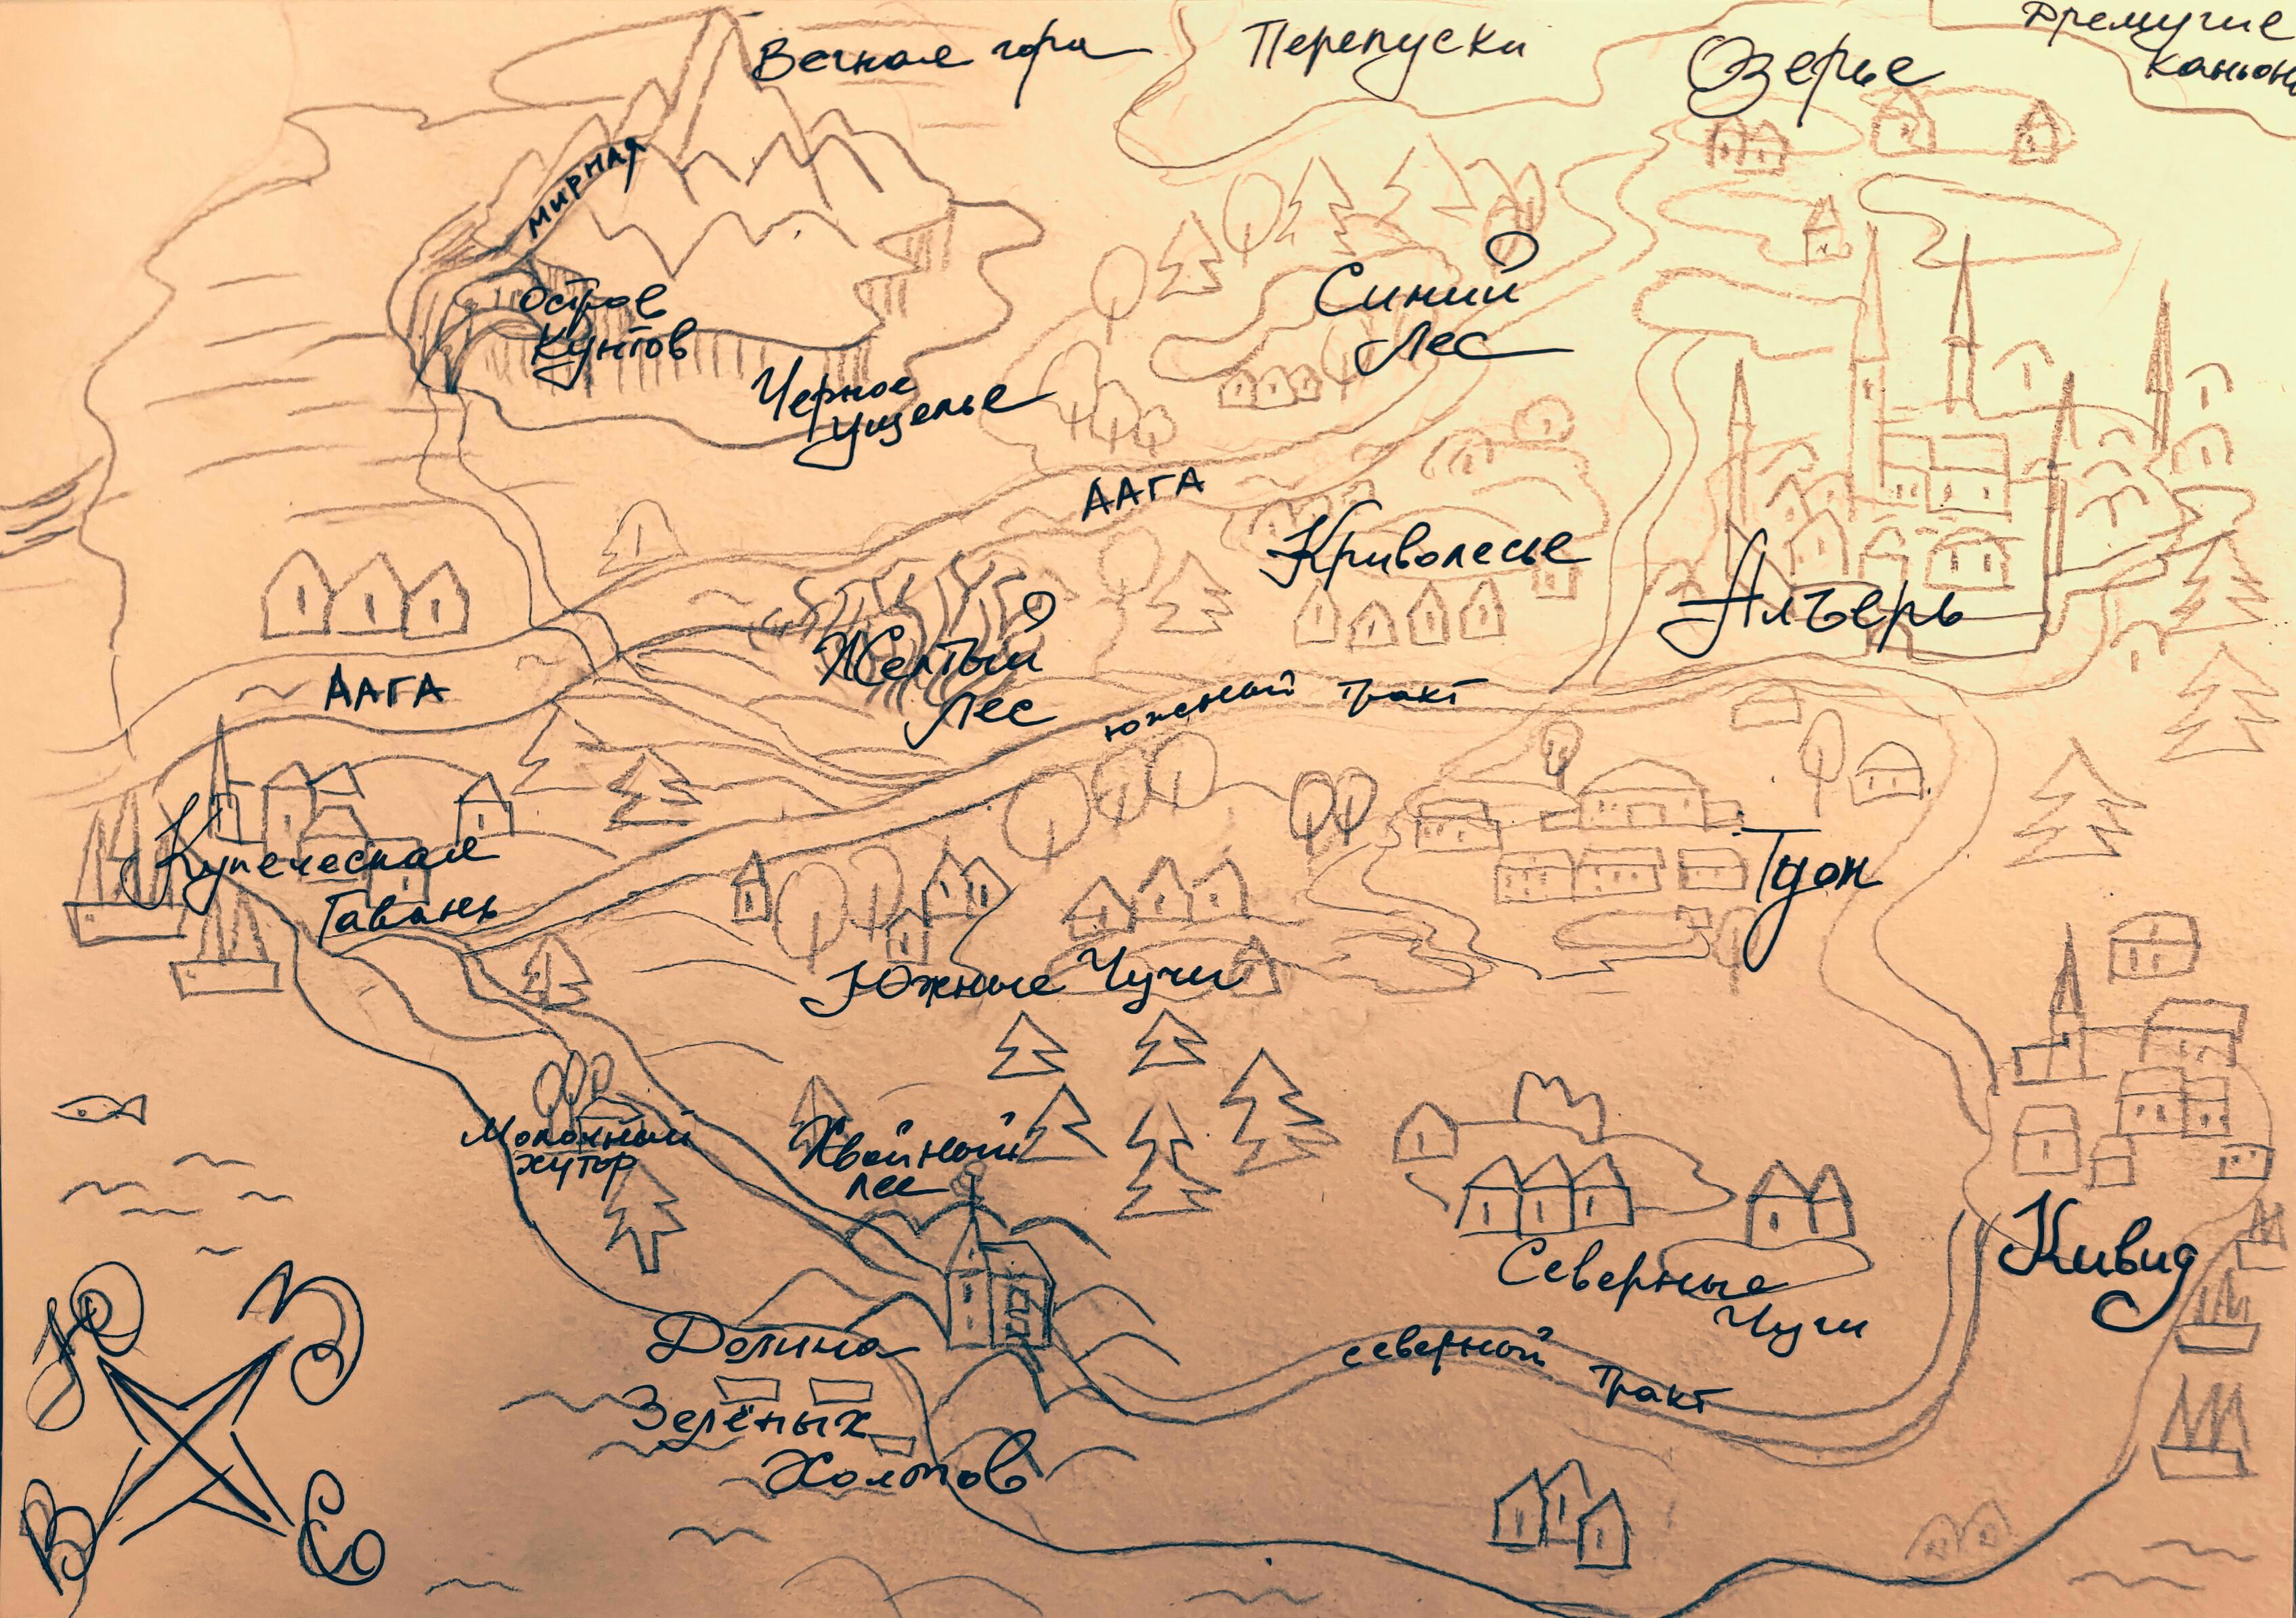 Вечная гора
Перепуски
Озерье
Дремучие
каньоны
мирная
остров
Кунтов
Черное
ущелье
Синий
лес
ААГА
Криволесье
Алъерь
Желтый
лес
ААГА
южный тракт
Купеческая
Гавань
Тдон
Южные Чучи
Молочный
хутор
Хвойный
лес
Северные
Чучи
Кивид
Долина
Зелёных
Холмов
северный тракт
Ю
З
В
С